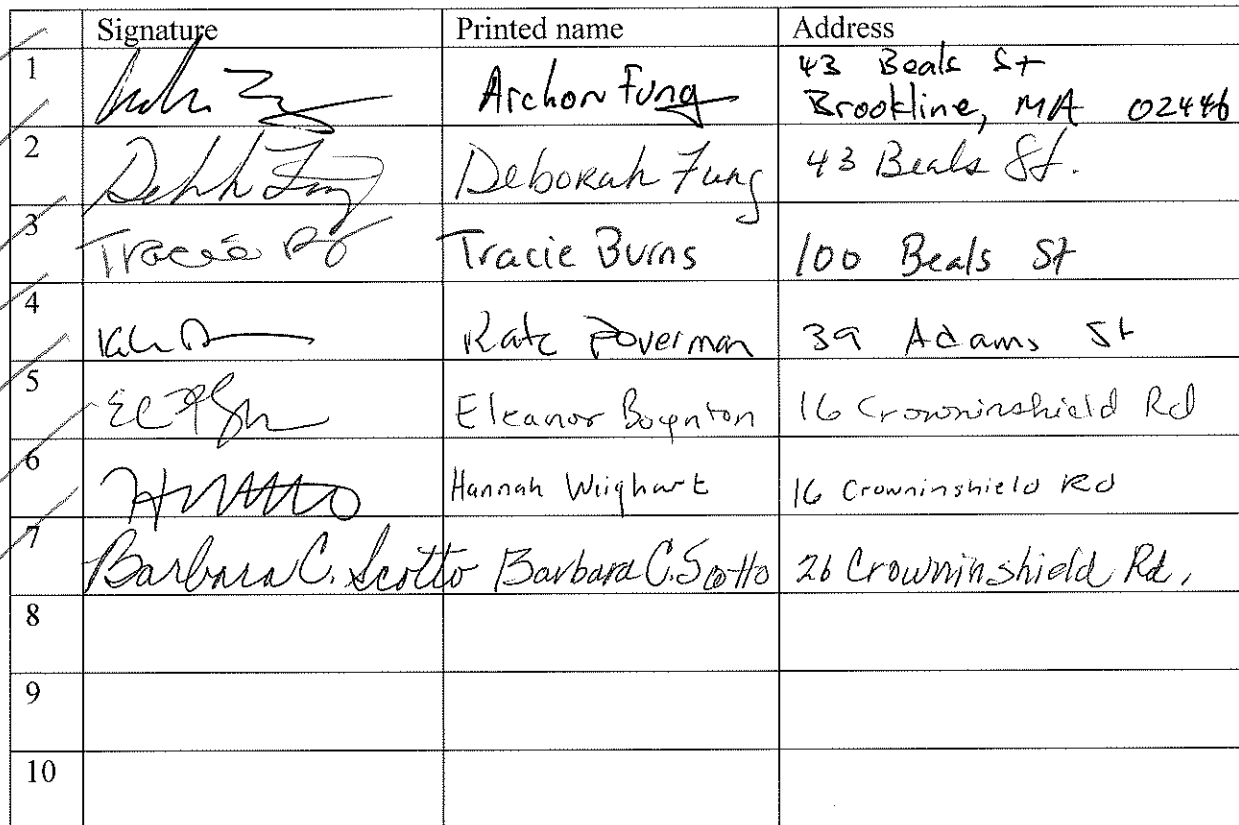 Signature Printed name Address
1 Archon Fung 43 Beals St
Brookline, MA 02446
2 Deborah Fung 43 Beals St.
3 Tracie Burns 100 Beals St
4 Kate Poverman 39 Adams St
5 Eleanor Boynton 16 Crowninshield Rd
6 Hannah Wiighart 16 Crowninshield Rd
7 Barbara C. Scotto Barbara C. Scotto 26 Crowninshield Rd.
8
9
10